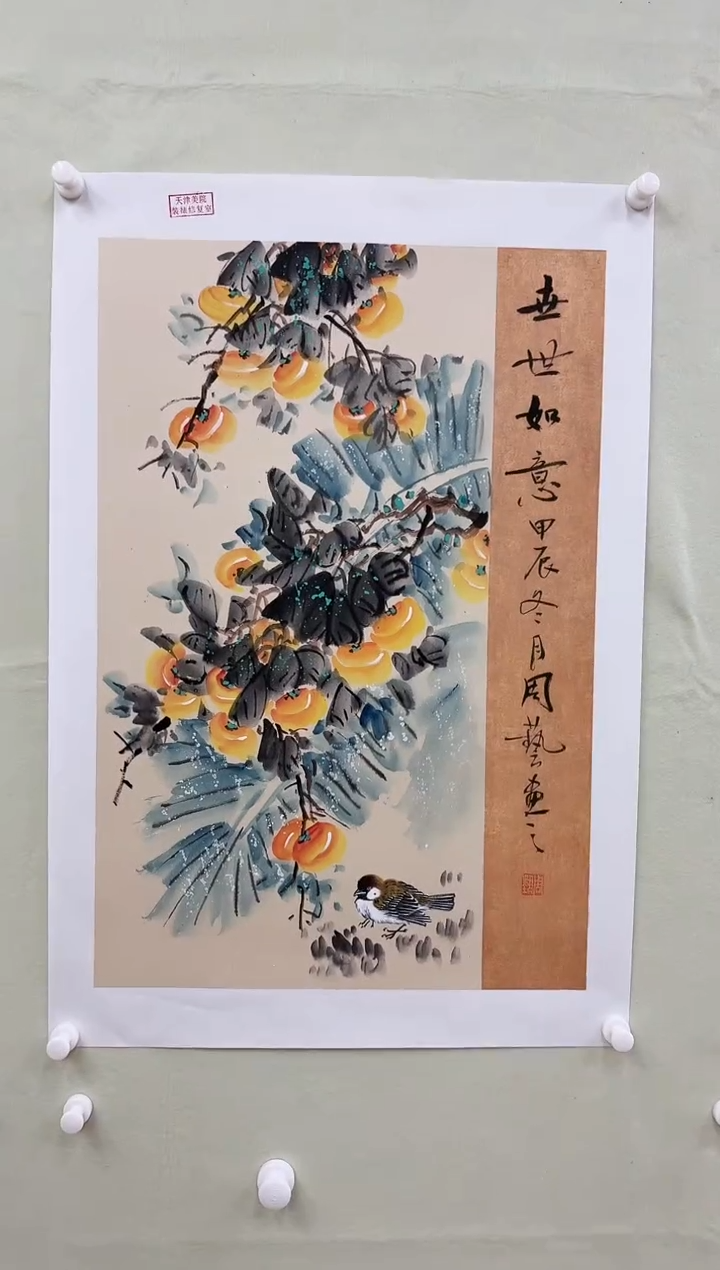 天津美院
装裱修复室
世世如意甲辰冬月周藝画之